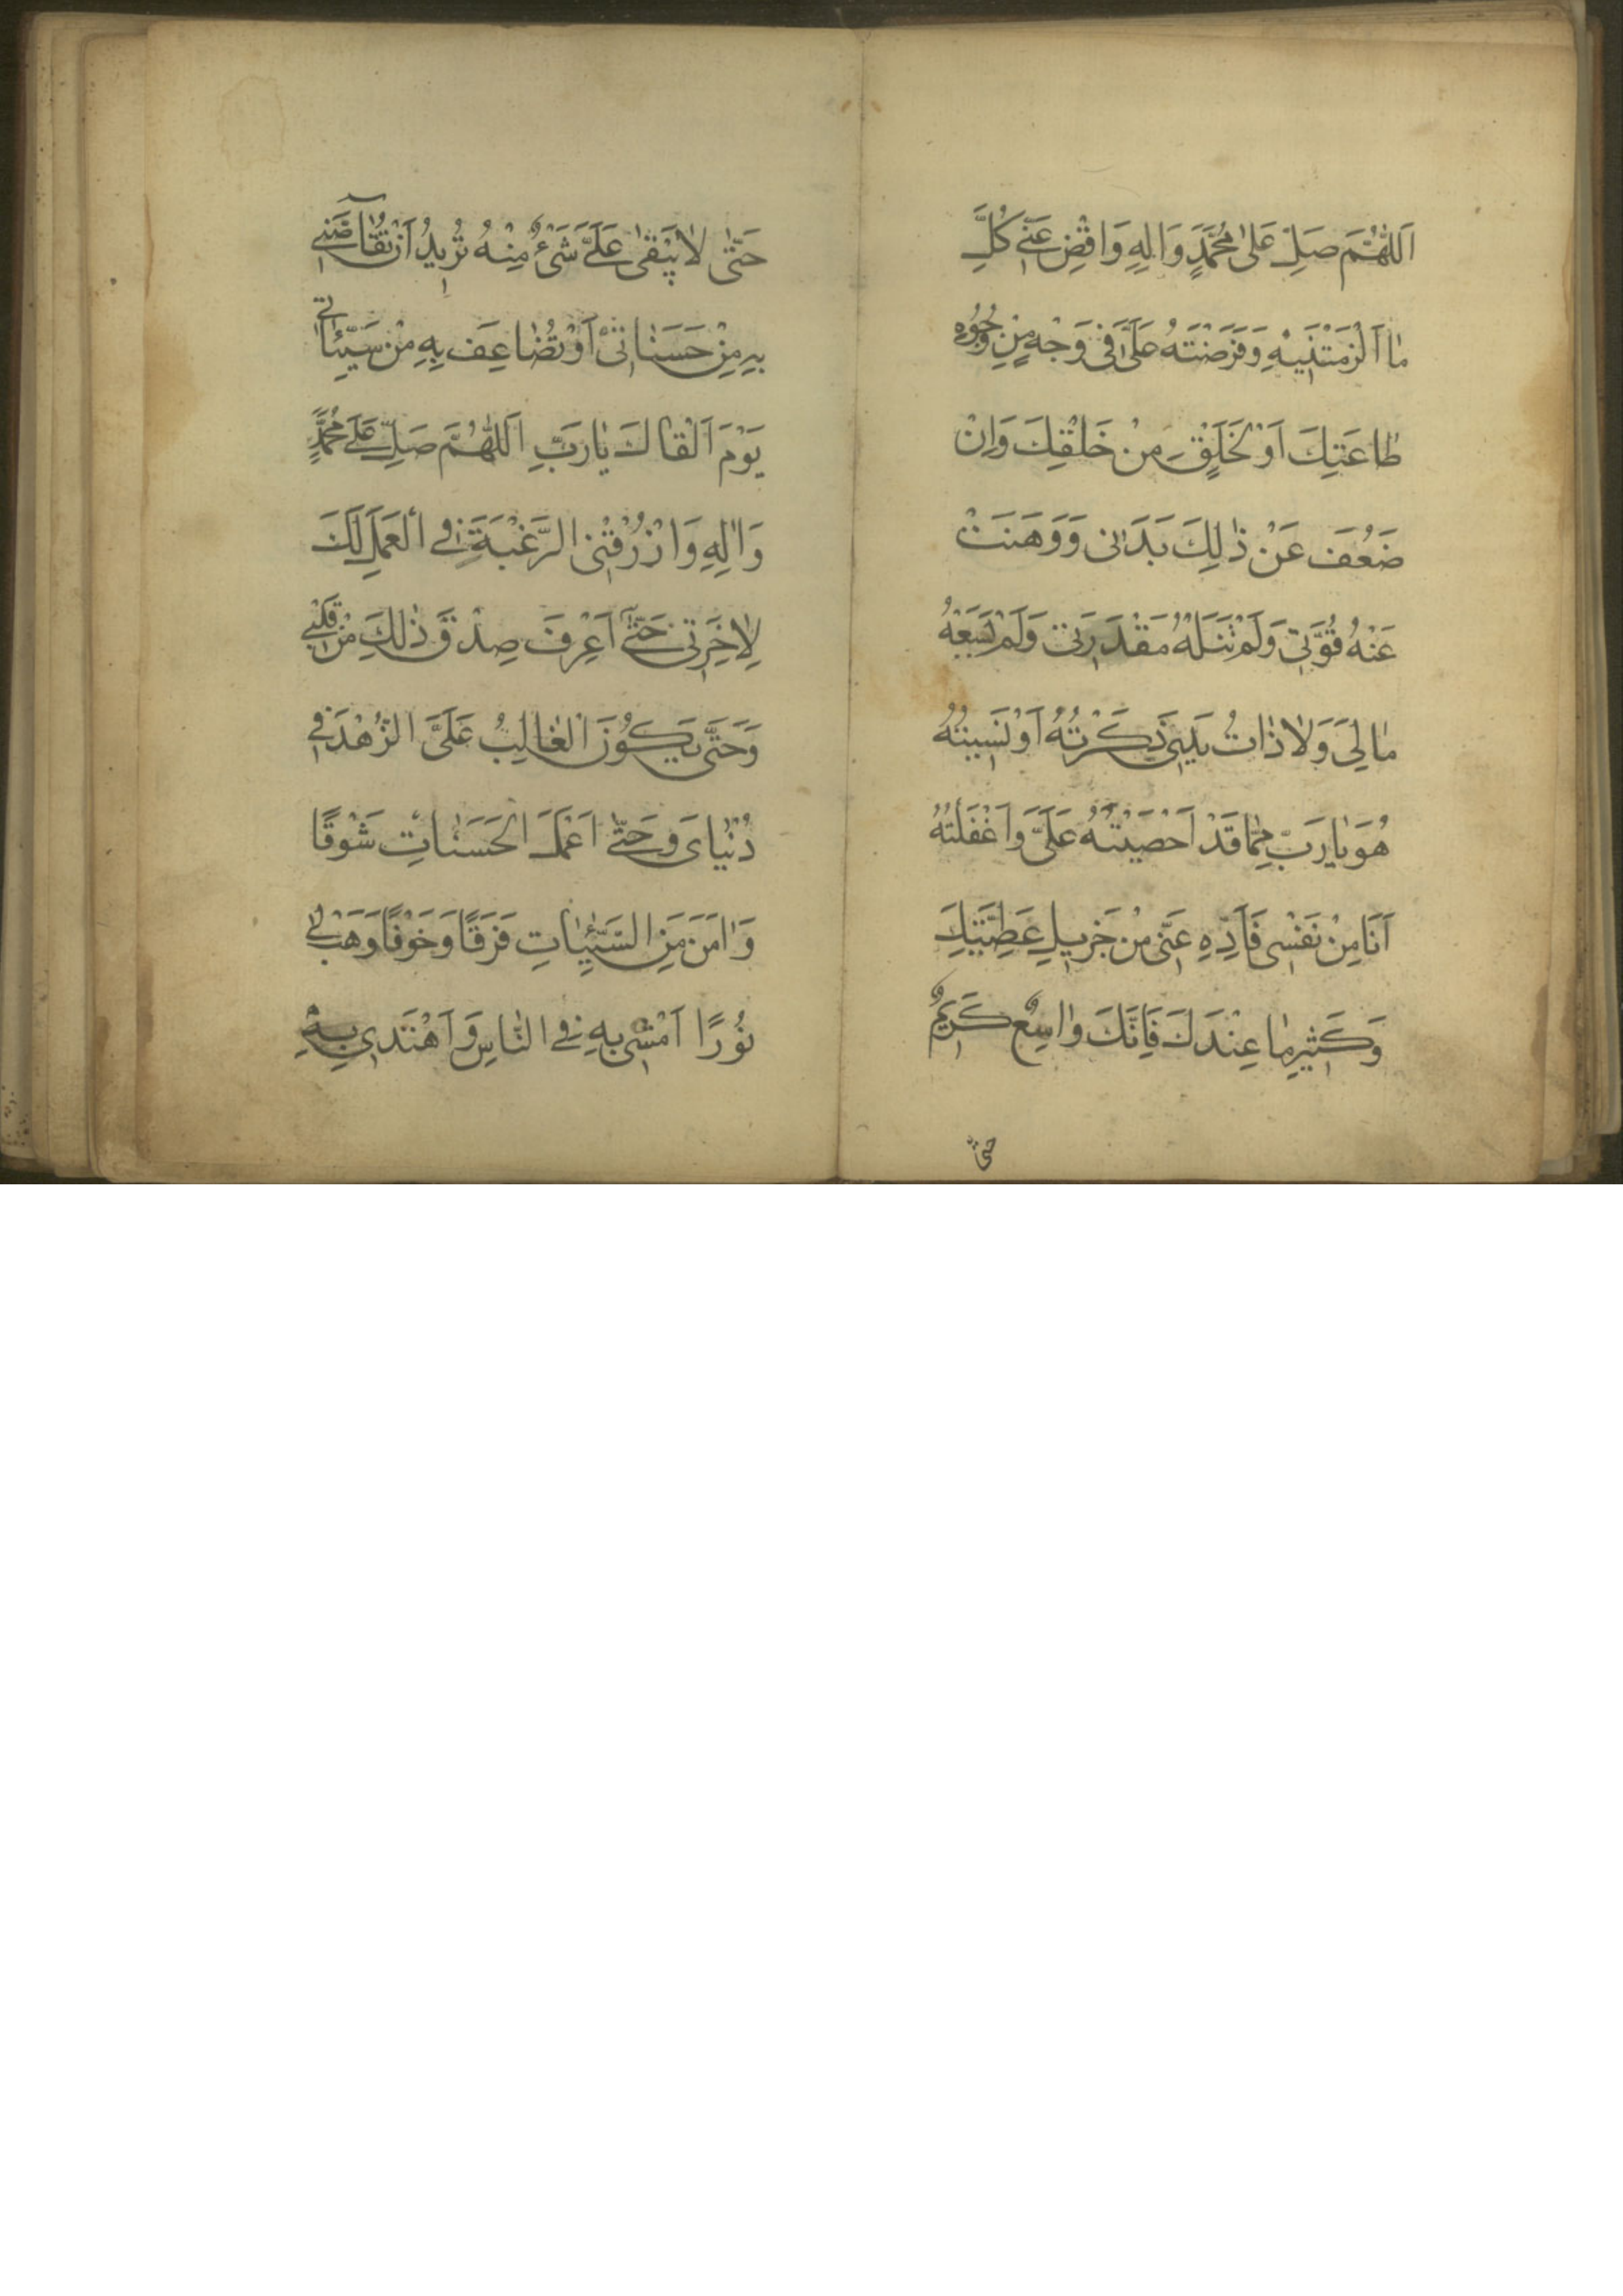 اَللّٰهُمَّ صَلِّ عَلٰى مُحَمَّدٍ وَاٰلِهِ وَاقْضِ عَنّٖي كُلَّ
مٰا اَلْزَمْتَنٖيهِ وَفَرَضْتَهُ عَلَيَّ فٖى وَجْهٍ مِنْ وُجُوهِ
طٰاعَتِكَ اَوْ لِخَلْقٍ مِنْ خَلْقِكَ وَاِنْ
ضَعُفَ عَنْ ذٰلِكَ بَدَنٖى وَوَهَنَتْ
عَنْهُ قُوَّتٖى وَلَمْ تَنَلْهُ مَقْدَرَتٖى وَلَمْ يَسَعْهُ
مٰالِيَ وَلٰا ذٰاتُ يَدٖي ذَكَرْتُهُ اَوْ نَسٖيتُهُ
هُوَ يٰا رَبِّ مِمّٰا قَدْ اَحْصَيْتَهُ عَلَيَّ وَاَغْفَلْتُهُ
اَنَا مِنْ نَفْسٖى فَاَدِّهِ عَنّٖى مِنْ جَزٖيلِ عَطِيَّتِكَ
وَكَثٖيرِ مٰا عِنْدَكَ فَاِنَّكَ وٰاسِعٌ كَرٖيمٌ
حتّى
حَتّٰى لٰا يَبْقٰى عَلَيَّ شَيْءٌ مِنْهُ تُرٖيدُ اَنْ تُقٰاصَّنٖي
بِهِ مِنْ حَسَنٰاتٖى اَوْ تُضٰاعِفَ بِهِ مِنْ سَيِّئٰاتٖي
يَوْمَ اَلْقٰاكَ يٰا رَبِّ اَللّٰهُمَّ صَلِّ عَلٰى مُحَمَّدٍ
وَاٰلِهِ وَارْزُقْنِى الرَّغْبَةَ فِي الْعَمَلِ لَكَ
لِاٰخِرَتٖى حَتّٰى اَعْرِفَ صِدْقَ ذٰلِكَ مِنْ قَلْبٖي
وَحَتّٰى يَكُونَ الْغٰالِبُ عَلَيَّ الزُّهْدَ فٖي
دُنْيٰاىَ وَحَتّٰى اَعْمَلَ الْحَسَنٰاتِ شَوْقًا
وَاٰمَنَ مِنَ السَّيِّئٰاتِ فَرَقًا وَخَوْفًا وَهَبْ لٖي
نُورًا اَمْشٖى بِهِ فِي النّٰاسِ وَاَهْتَدٖي بِهِ